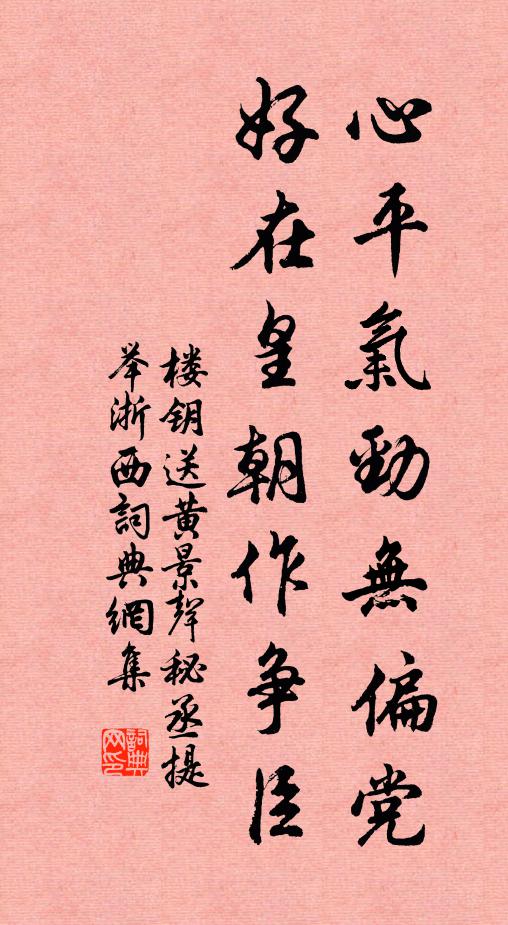 心平氣勁無偏党
好在皇朝作争臣
楼钥送黄景聲秘丞提
举浙西詞典網集
詞典
网印